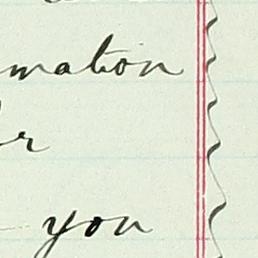 mation
er
you